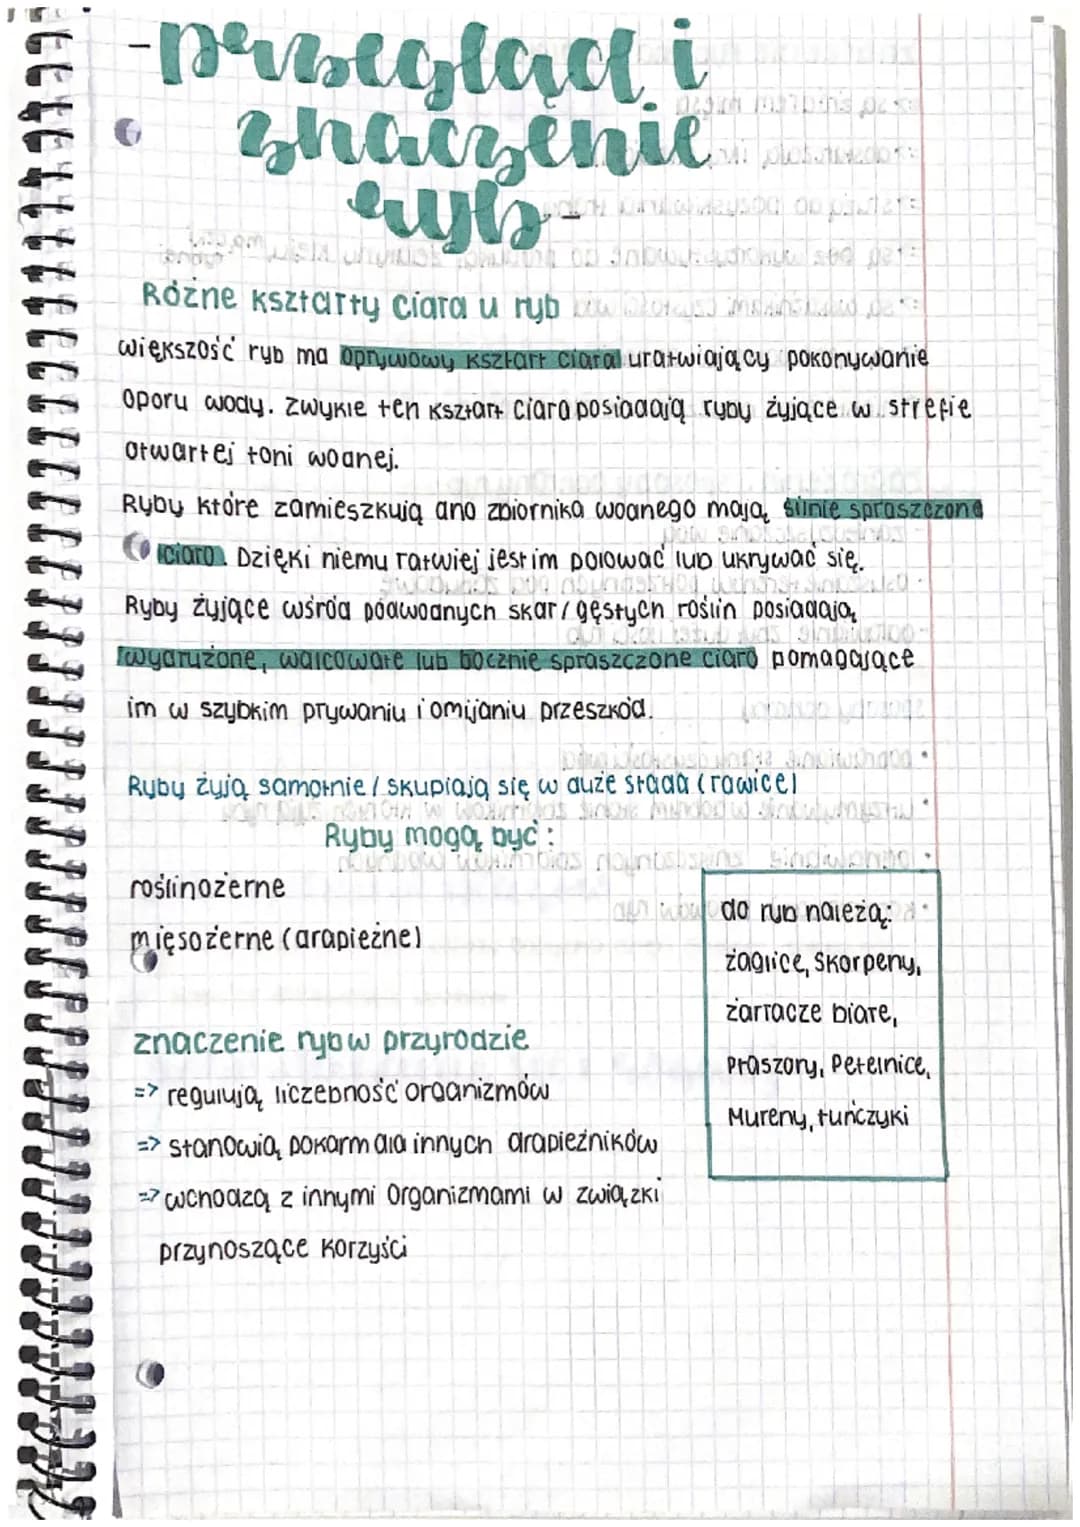 -przegląd i
znaczenie
ryb-
Różne kształty ciała u ryb
większość ryb ma opływowy kształt ciała ułatwiający pokonywanie
oporu wody. zwykle ten kształt ciała posiadają ryby żyjące w strefie
otwartej toni wodnej.
Ryby które zamieszkują dno zbiornika wodnego mają silnie spłaszczone
ciało. Dzięki niemu łatwiej jest im polować lub ukrywać się.
Ryby żyjące wśród podwodnych skał/gęstych roślin posiadają
wydłużone, walcowate lub bocznie spłaszczone ciało pomagające
im w szybkim pływaniu i omijaniu przeszkód.
Ryby żyją samotnie / skupiają się w duże stada (ławice)
Ryby mogą być:
roślinożerne
mięsożerne (drapieżne)
do ryb należą:
żaglice, Skorpeny,
żarłacze białe,
Płaszczory, Petelnice,
Mureny, tuńczyki
znaczenie ryb w przyrodzie
=> regulują liczebność organizmów
=> stanowią pokarm dla innych drapieżników
=> wchodzą z innymi organizmami w związki
przynoszące korzyści